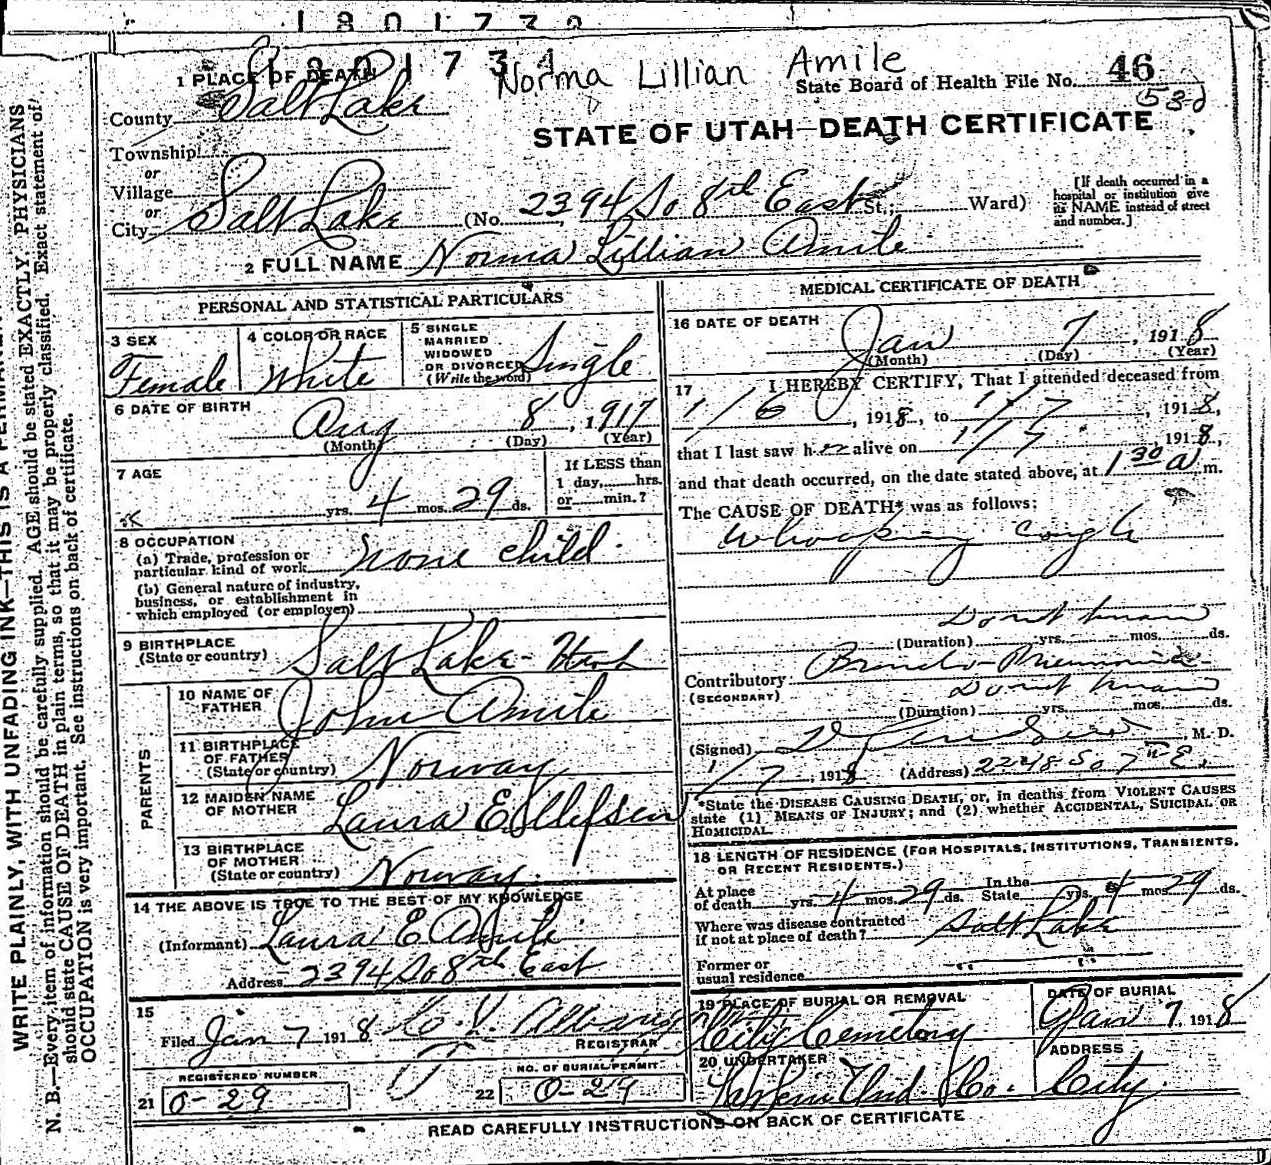 1801732
1801734
Norma Lillian Amile
State Board of Health File No. 46
530
1 PLACE OF DEATH
County Salt Lake
STATE OF UTAH—DEATH CERTIFICATE
Township
or
Village
or
City Salt Lake (No. 2394 So 8th East St.; Ward)
[If death occurred in a
hospital or institution give
its NAME instead of street
and number.]
2 FULL NAME Norma Lillian Amile
PERSONAL AND STATISTICAL PARTICULARS
3 SEX
Female
4 COLOR OR RACE
White
5 SINGLE
MARRIED
WIDOWED
OR DIVORCED
(Write the word)
Single
6 DATE OF BIRTH
Aug 8, 1917
(Month) (Day) (Year)
7 AGE
yrs. 4 mos. 29 ds.
If LESS than
1 day, hrs.
or min.?
8 OCCUPATION
(a) Trade, profession or
particular kind of work none child
(b) General nature of industry,
business, or establishment in
which employed (or employer)
9 BIRTHPLACE
(State or country) Salt Lake - Utah
PARENTS
10 NAME OF
FATHER John Amile
11 BIRTHPLACE
OF FATHER
(State or country) Norway
12 MAIDEN NAME
OF MOTHER Laura Ellefsen
13 BIRTHPLACE
OF MOTHER
(State or country) Norway.
14 THE ABOVE IS TRUE TO THE BEST OF MY KNOWLEDGE
(Informant) Laura E Amile
Address 2394 So 8th East
15
Filed Jan 7 1918
REGISTRAR
REGISTERED NUMBER
21 0-29
NO. OF BURIAL PERMIT
22 0-29
MEDICAL CERTIFICATE OF DEATH
16 DATE OF DEATH
Jan 7, 1918
(Month) (Day) (Year)
17 I HEREBY CERTIFY, That I attended deceased from
1/6, 1918, to 1/7, 1918,
that I last saw her alive on 1/7, 1918,
and that death occurred, on the date stated above, at 1 30 a m.
The CAUSE OF DEATH* was as follows:
Whooping cough
Do not know
(Duration) yrs. mos. ds.
Contributory Broncho-Pneumonia
(SECONDARY)
Do not know
(Duration) yrs. mos. ds.
(Signed) M. D.
1/7, 1918 (Address) 2248 So 7th E.
*State the DISEASE CAUSING DEATH, or, in deaths from VIOLENT CAUSES
state (1) MEANS OF INJURY; and (2) whether ACCIDENTAL, SUICIDAL OR
HOMICIDAL.
18 LENGTH OF RESIDENCE (FOR HOSPITALS, INSTITUTIONS, TRANSIENTS,
OR RECENT RESIDENTS.)
At place
of death yrs. 4 mos. 29 ds. In the
State yrs. 4 mos. 29 ds.
Where was disease contracted
if not at place of death? Salt Lake
Former or
usual residence
19 PLACE OF BURIAL OR REMOVAL
City Cemetery
DATE OF BURIAL
Jan 7 1918
20 UNDERTAKER
Und Co.
ADDRESS
City.
READ CAREFULLY INSTRUCTIONS ON BACK OF CERTIFICATE
WRITE PLAINLY, WITH UNFADING INK—THIS IS A
N. B.—Every item of information should be carefully supplied. AGE should be stated EXACTLY. PHYSICIANS
should state CAUSE OF DEATH in plain terms, so that it may be properly classified. Exact statement of
OCCUPATION is very important. See instructions on back of certificate.